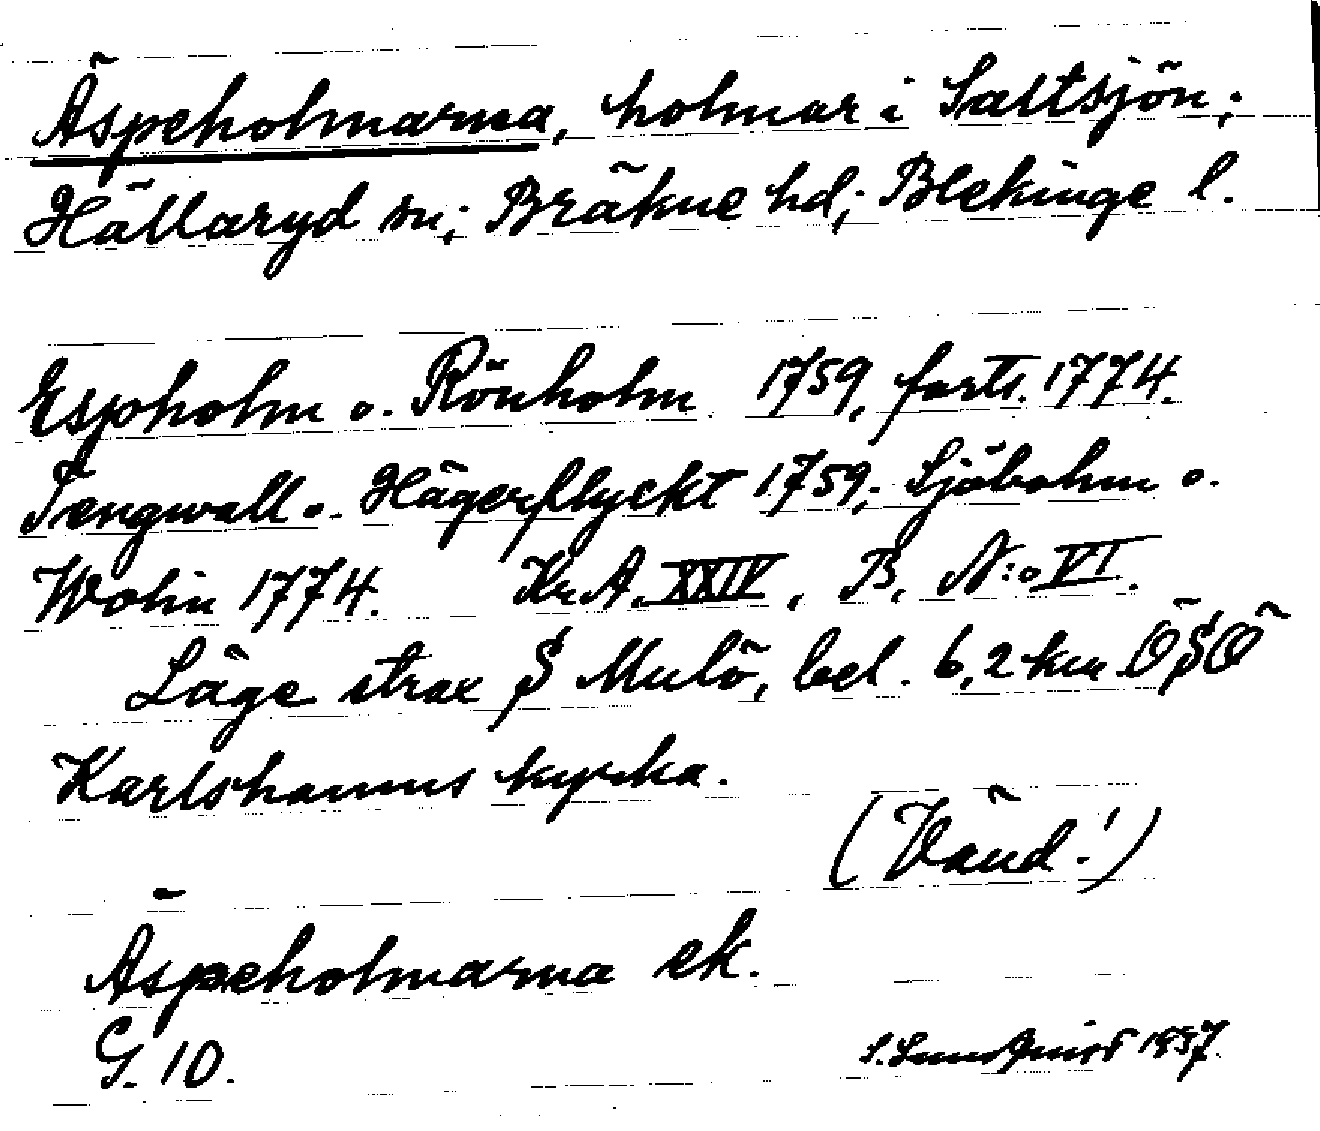 Äspeholmarna, holmar i Saltsjön;
Hällaryd sn; Bräkne hd; Blekinge l.
Espholm o. Rönholm 1759, forts. 1774.
Tengwall o. Hägerflyckt 1759; Sjöbohm o.
Wolin 1774. Kr.A. XXIV, B, N:o VI.
Läge strax S Mulö, bel. 6,2 km ÖSÖ
Karlshamns kyrka.
(Vänd!)
Äspeholmarna ek.
G. 10.